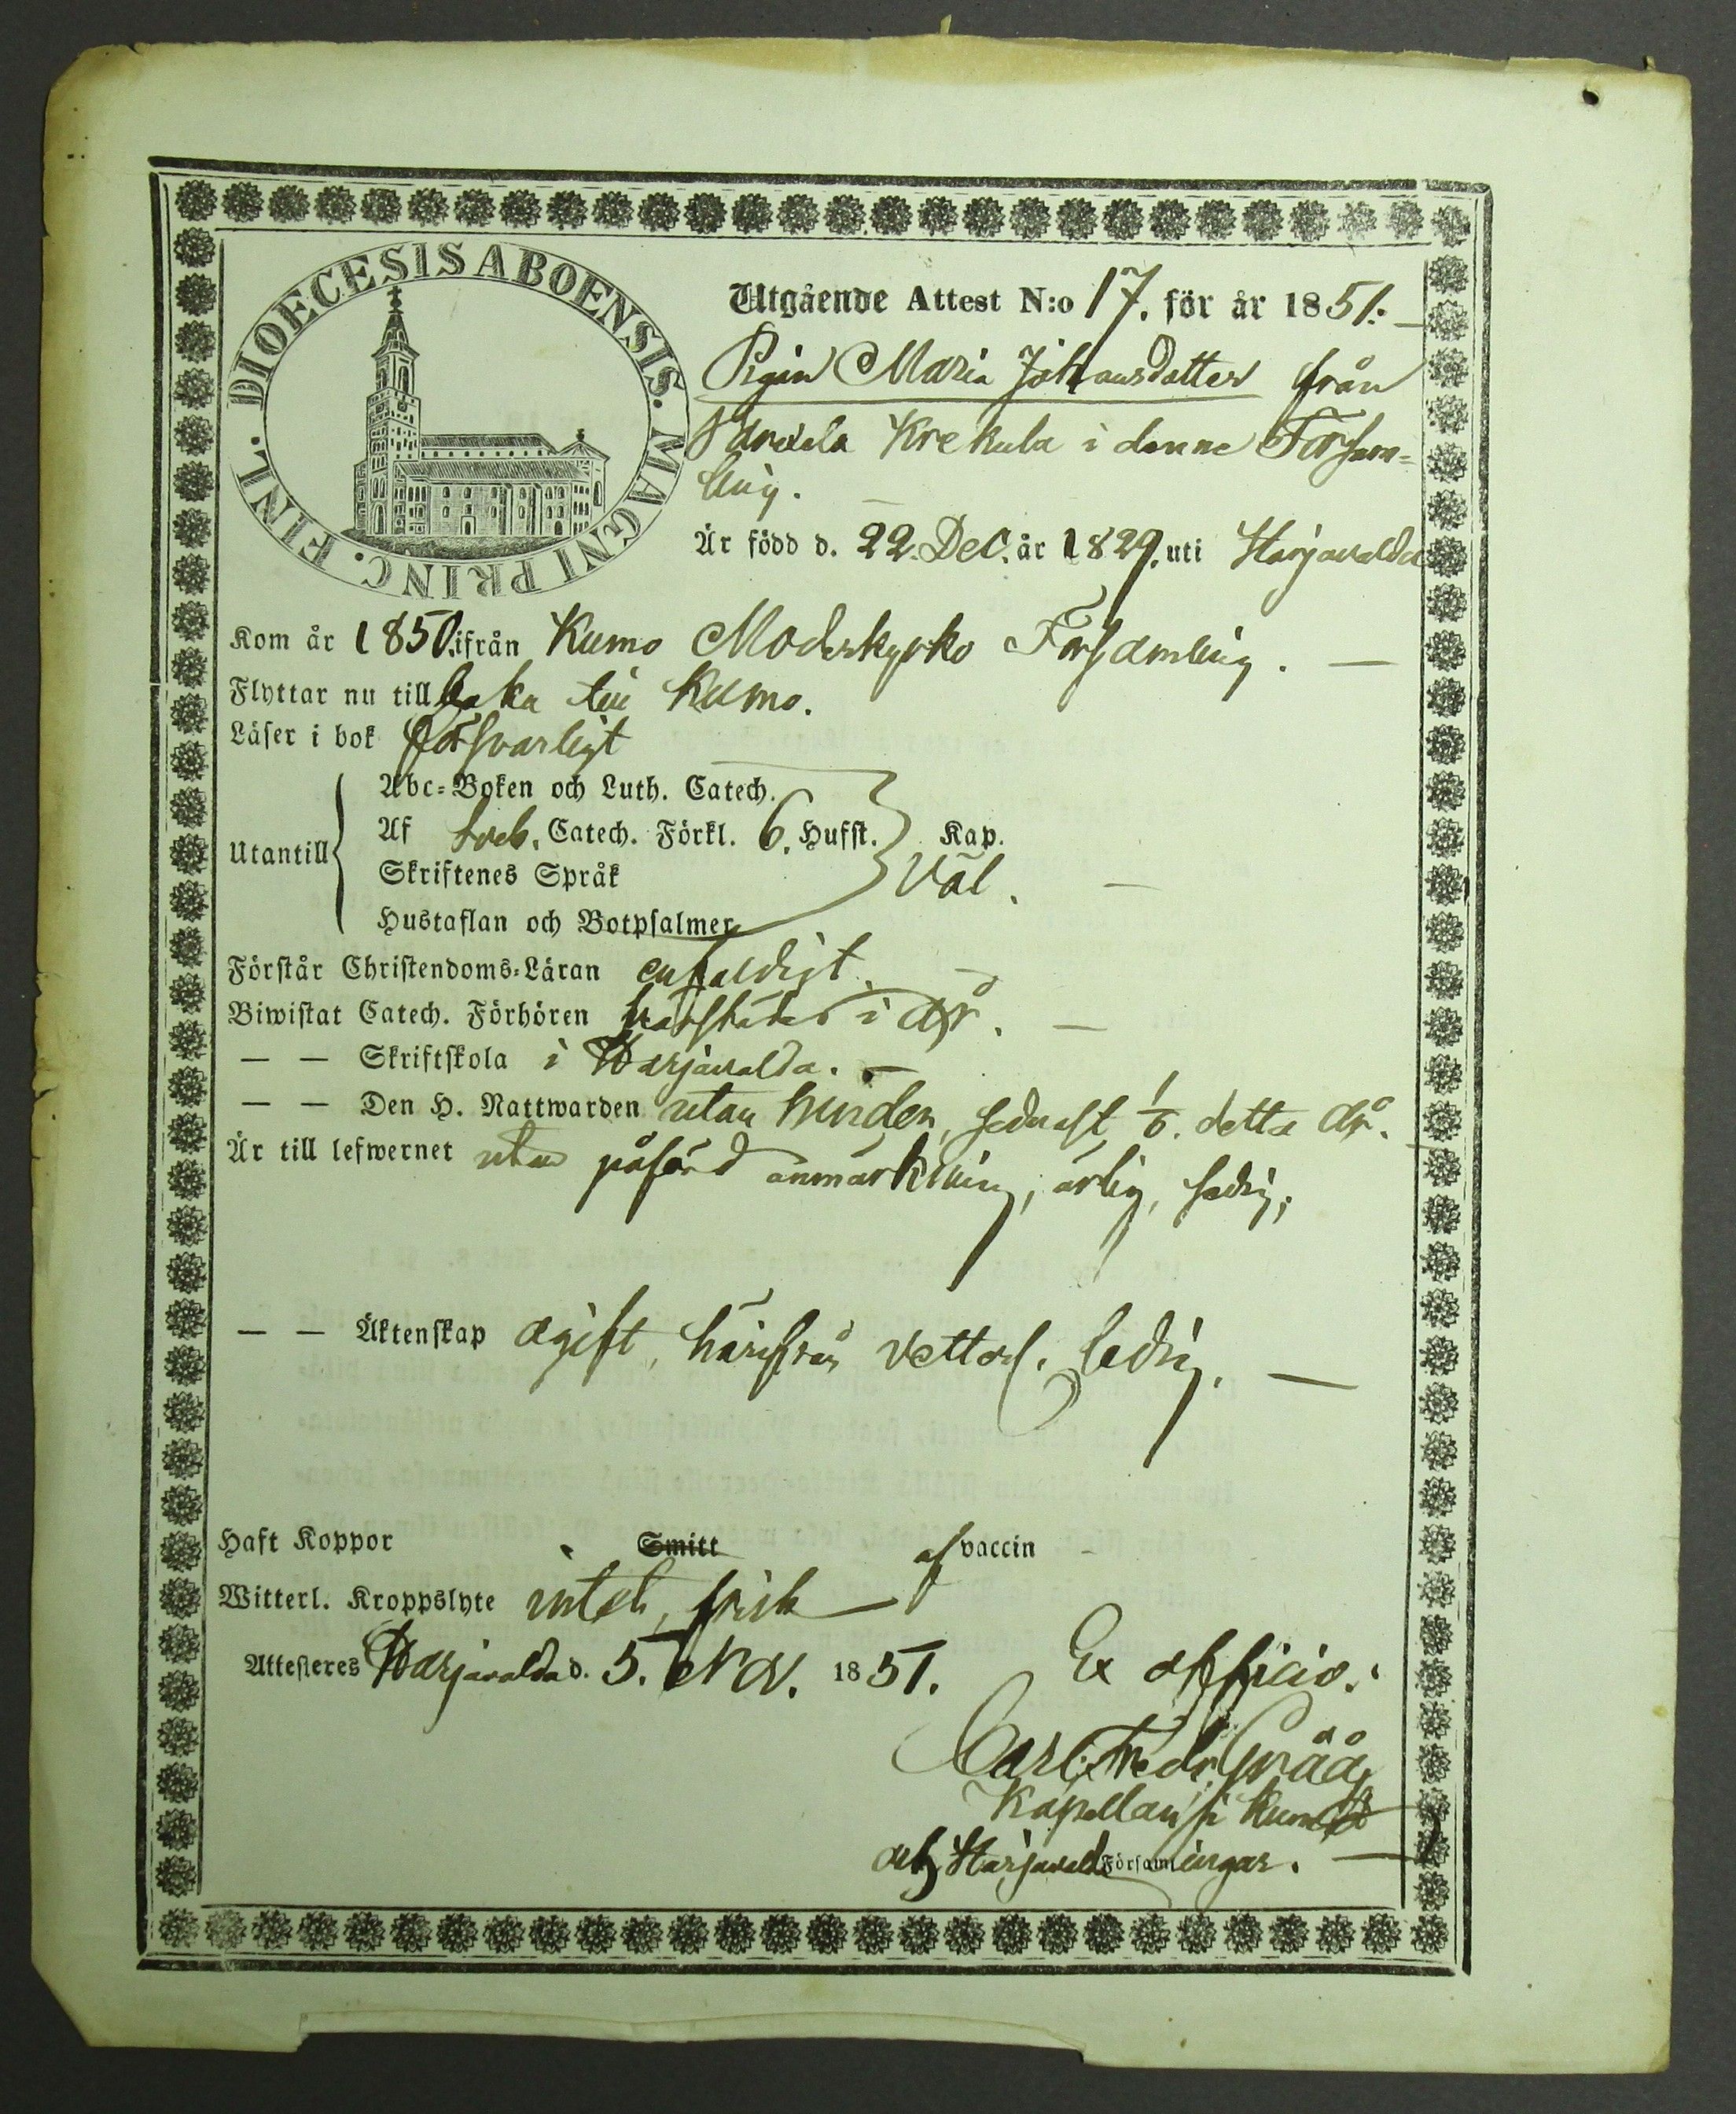 DIOECESIS ABOENSIS. MAGNI PRINC. FINL.
Utgående Attest N:o 17. för år 1851.
Pigan Maria Johansdotter från
Krekula i denne Försam-
ling.
Är född d. 22. Dec. år 1829. uti Harjavalda
Kom år 1850. ifrån Kumo Moderkyrko Församling.
Flyttar nu tillbaka till Kumo.
Läser i bok försvarligt
Utantill
Abc-Boken och Luth. Catech.
Af Sveb. Catech. Förkl. 6. Hufst. Kap.
Skriftenes Språk Väl.
Hustaflan och Botpsalmer
Förstår Christendoms-Läran enfaldigt.
Biwistat Catech. Förhören härstädes i år.
— — Skriftskola i Harjavalda.
— — Den H. Nattwarden utan hinder, sednast detta år.
Är till lefwernet utan påförd anmärkning, ärlig, sedig;
— — Äktenskap ogift, härifrån vetterl. ledig.
Haft Koppor Smitt af vaccin
Witterl. Kroppslyte intet, frisk
Attesteres Harjavalda d. 5. Nov. 1851. Ex officio:
Carl Fredr. Grååg
Kapellan i Kumo
och Harjavalda Församlingar.